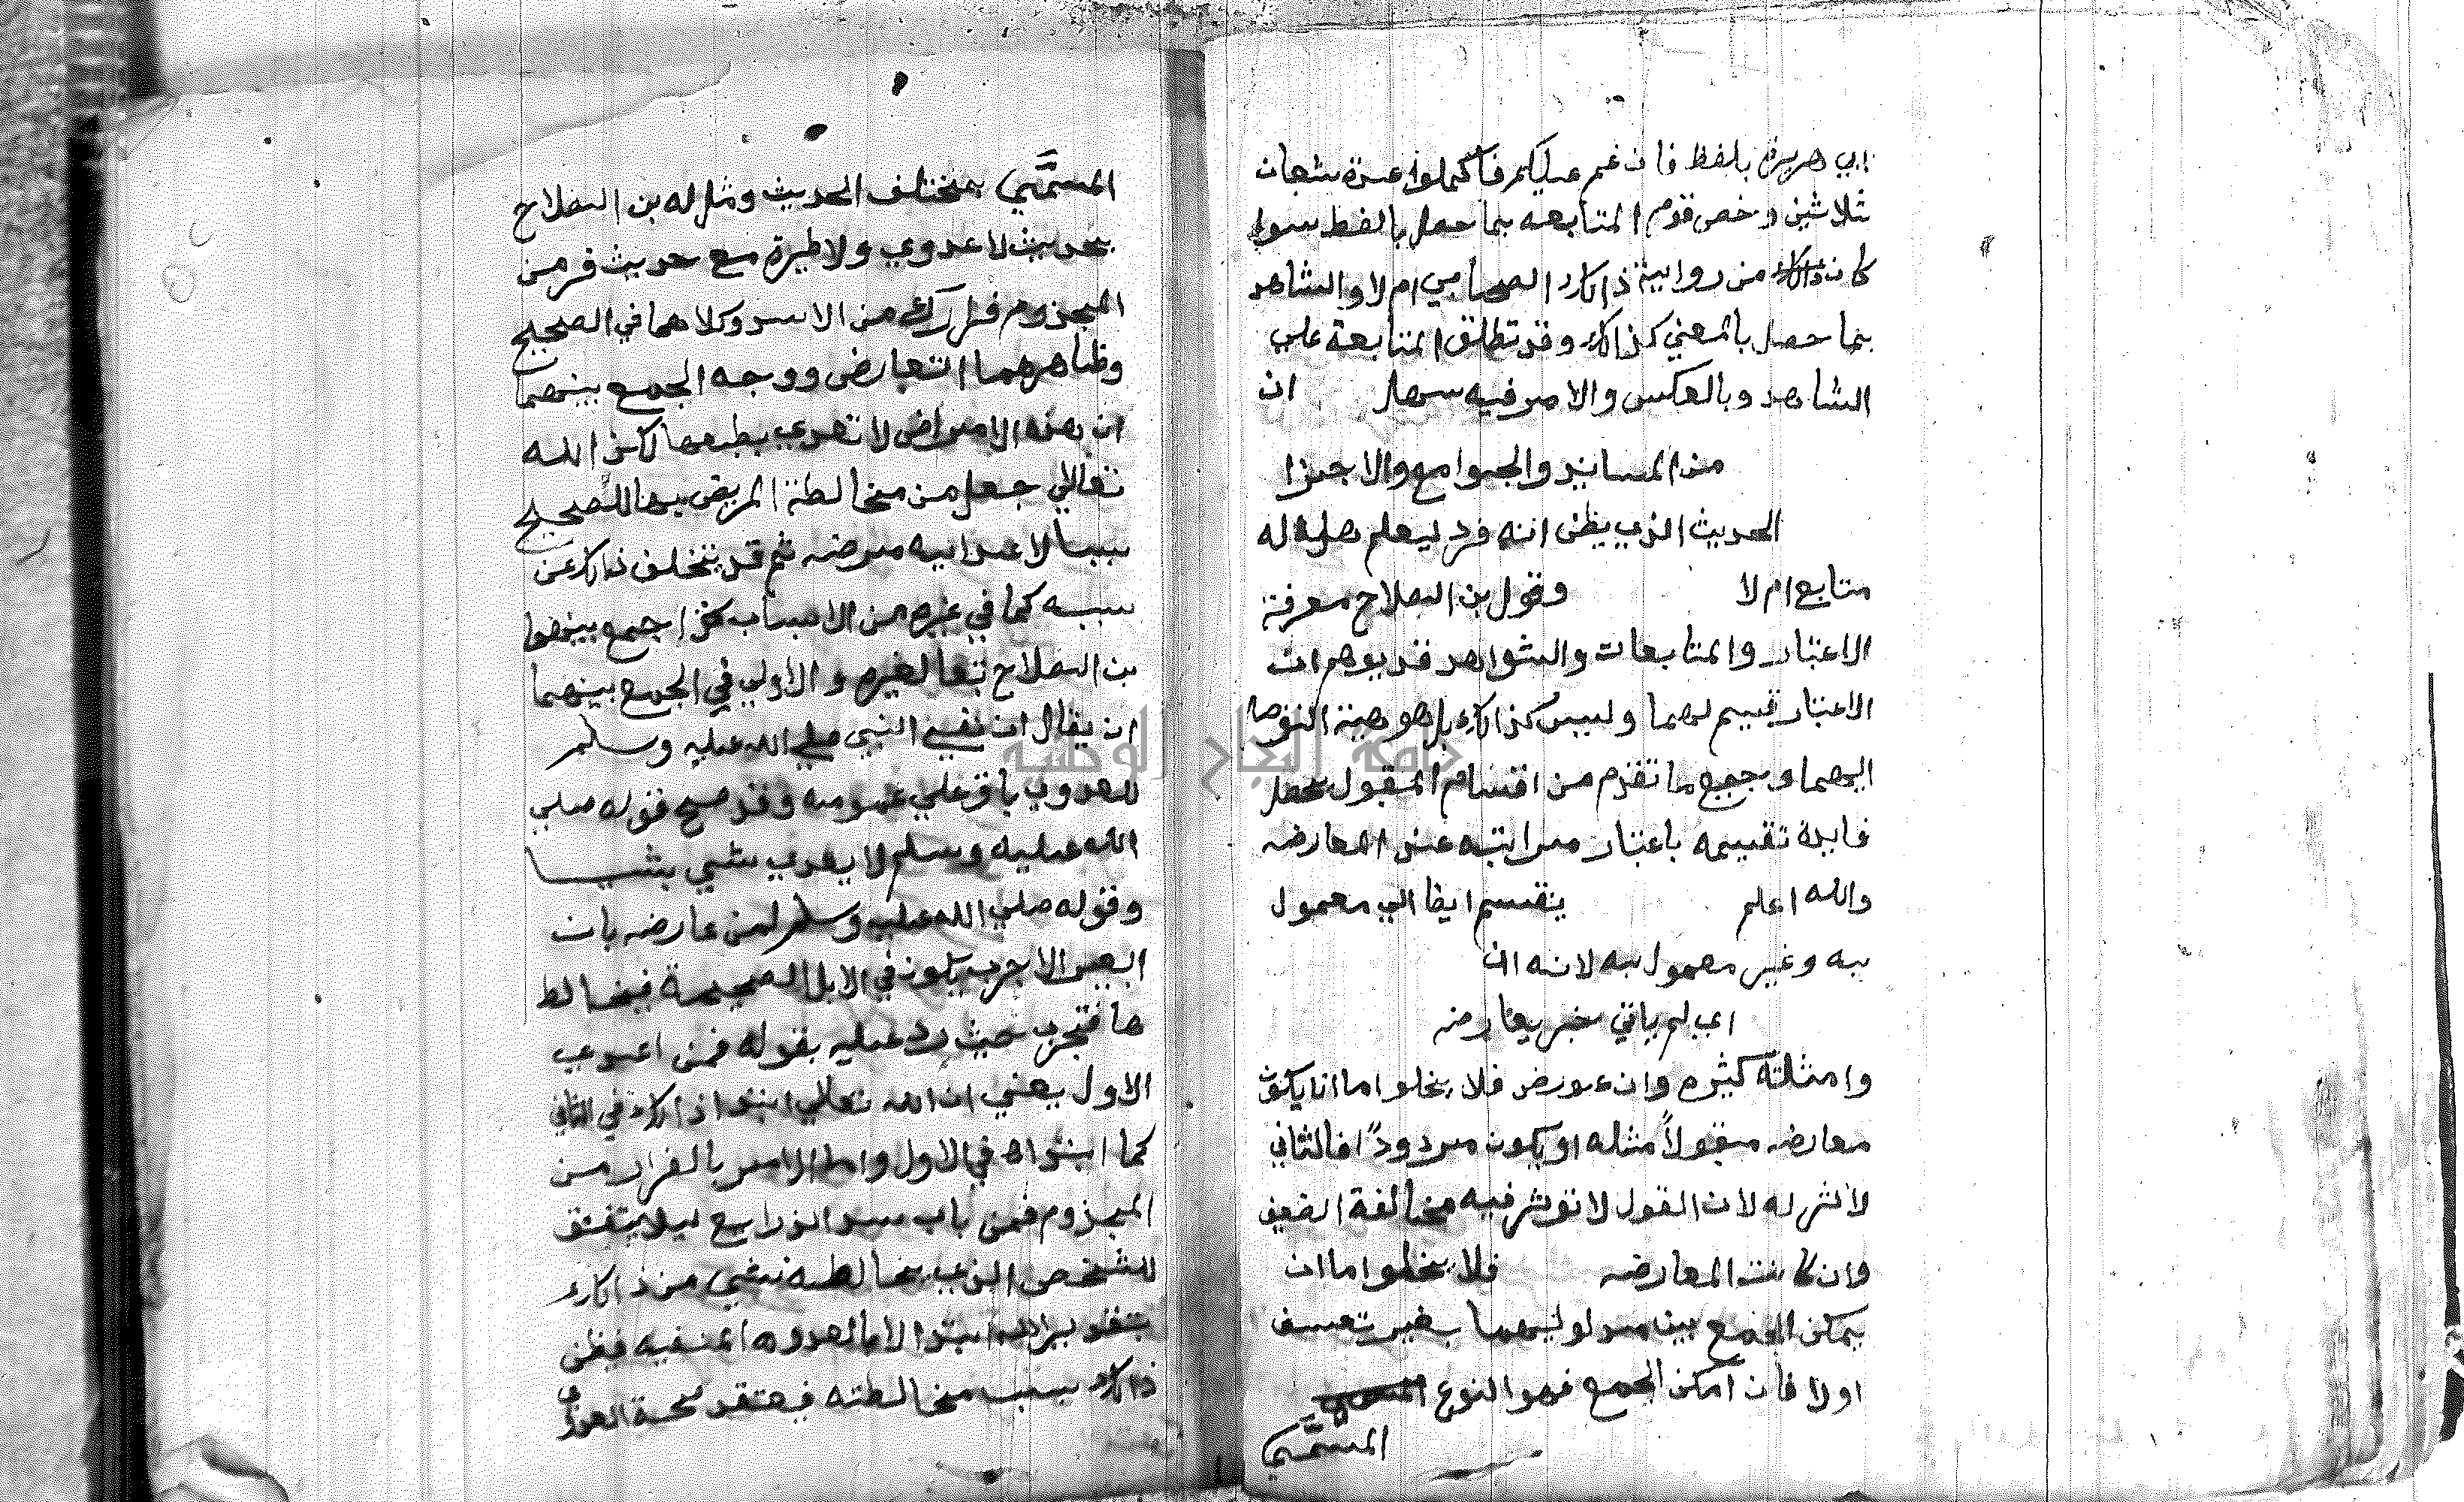 ابي هريرة بلفظ فان غم عليكم فاكملوا عدة شعبان
ثلاثين وخص قوم المتابعه بما حصل باللفظ سوا
كان من رواية ذالك الصحابي ام لا والشاهد
بما حصل بالمعني كذالك وقد تطلق المتابعة علي
الشاهد وبالعكس والامر فيه سهل ان
من المسانيد والجوامع والاجزا
الحديث الذي يظن انه فرد ليعلم هل له
متابع ام لا وقول بن الصلاح معرفة
الاعتبار والمتابعات والشواهد قد يوهم ان
الاعتبار قسيم لهما وليس كذالك بل هو هيئة التوصل
اليهما وجميع ما تقدم من اقسام المقبول تحصل
فايدة تقسيمه باعتبار مراتبه عند المعارضه
والله اعلم ينقسم ايضا الي معمول
به وغير معمول به لانه ان
اي لم ياتي خبر يعارضه
وامثلته كثيره وان عورض فلا يخلوا اما ان يكون
معارضه مقبولاً مثله او يكون مردوداً فالثاني
لا اثر له لان القول لا توثر فيه مخالفة الضعيف
وان كانت المعارضه فلا يخلوا اما ان
يمكن الجمع بين مدلوليهما بغير تعسف
اولا فان امكن الجمع فهو النوع
المسمَّي
المسمَّي بمختلف الحديث ومثل له بن الصلاح
بحديث لا عدوي ولا طيرة مع حديث فر من
المجذوم فرارك من الاسد وكلاهما في الصحيح
وظاهرهما التعارض ووجه الجمع بينهما
ان هذه الامراض لا تعدي بطبعها لاكن الله
تعالي جعل من مخالطة المريض بها للصحيح
سببا لاعدايه مرضه ثم قد يتخلف ذالك عن
سببه كما في غيره من الاسباب كذا جمع بينهما
بن الصلاح تبعا لغيره والاولي في الجمع بينهما
ان يقال ان نفي النبي صلي الله عليه وسلم
للعدوي باق علي عمومه وقد صح قوله صلي
الله عليه وسلم لا يعدي شي بشيا
وقوله صلي الله عليه وسلم لمن عارضه بان
البعير الاجرب يكون في الابل الصحيحة فيخالط
ها فتجرب حيث رد عليه بقوله فمن اعدي
الاول يعني ان الله تعالي ابتدا ذالك في الثاني
كما ابتداه في الاول واما الامر بالفرار من
المجذوم فمن باب سد الذرايع ليلا يتفق
للشخص الذي يخالطه شي من ذالك
بتقدير الله ابتدا لا بالعدوه المنفيه فيظن
ذالك بسبب مخالطته فيعتقد صحة العدوي
جامعة النجاح الوطنية